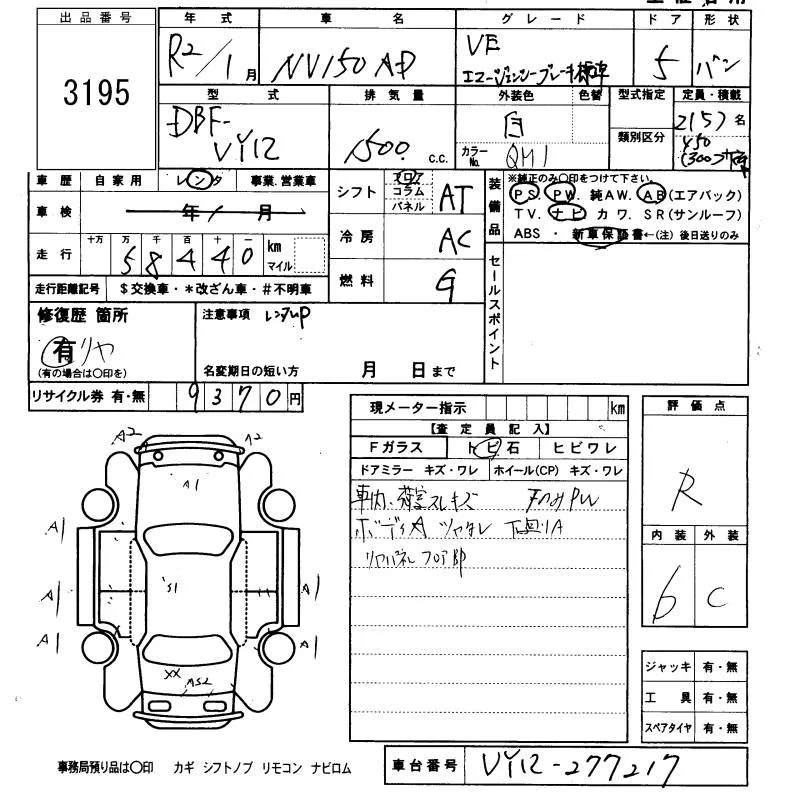 出品番号
3195
年式 車名 グレード ドア 形状
R2/1月 NV150AD VE 5 バン
エマージェンシーブレーキ標準
型式 排気量 外装色 色替 型式指定 定員・積載
DBF-VY12 1500 c.c. 白 カラーNo. QM1 類別区分 2(5)名
450(300)
車歴 自家用 レンタ 事業.営業車
車検 年 月
シフト フロア コラム パネル AT
冷房 AC
燃料 G
走行 十万 万 千 百 十 一 km マイル
58440
走行距離記号 $交換車・*改ざん車・#不明車
装備品
※純正のみ〇印をつけて下さい。
PS. PW. 純AW. AB(エアバック)
TV. ナビ カワ. SR(サンルーフ)
ABS ・ 新車保証書←(注) 後日送りのみ
セールスポイント
修復歴 箇所
有 リヤ
(有の場合は〇印を)
注意事項 レンタUP
名変期日の短い方 月 日まで
リサイクル券 有・無 9370円
現メーター指示 km
【査定員記入】
Fガラス トビ石 ヒビワレ
ドアミラー キズ・ワレ ホイール(CP) キズ・ワレ
車内、荷室スレキズ
ボディA ツヤナシ 下回りA
リヤパネル フロア部
評価点
R
内装 外装
6 C
ジャッキ 有・無
工具 有・無
スペアタイヤ 有・無
A2 A2
A1
A1 A1
S1
A1 A1
A1 A1
XX
AS2
事務局預り品は〇印 カギ シフトノブ リモコン ナビロム
車台番号 VY12-277217